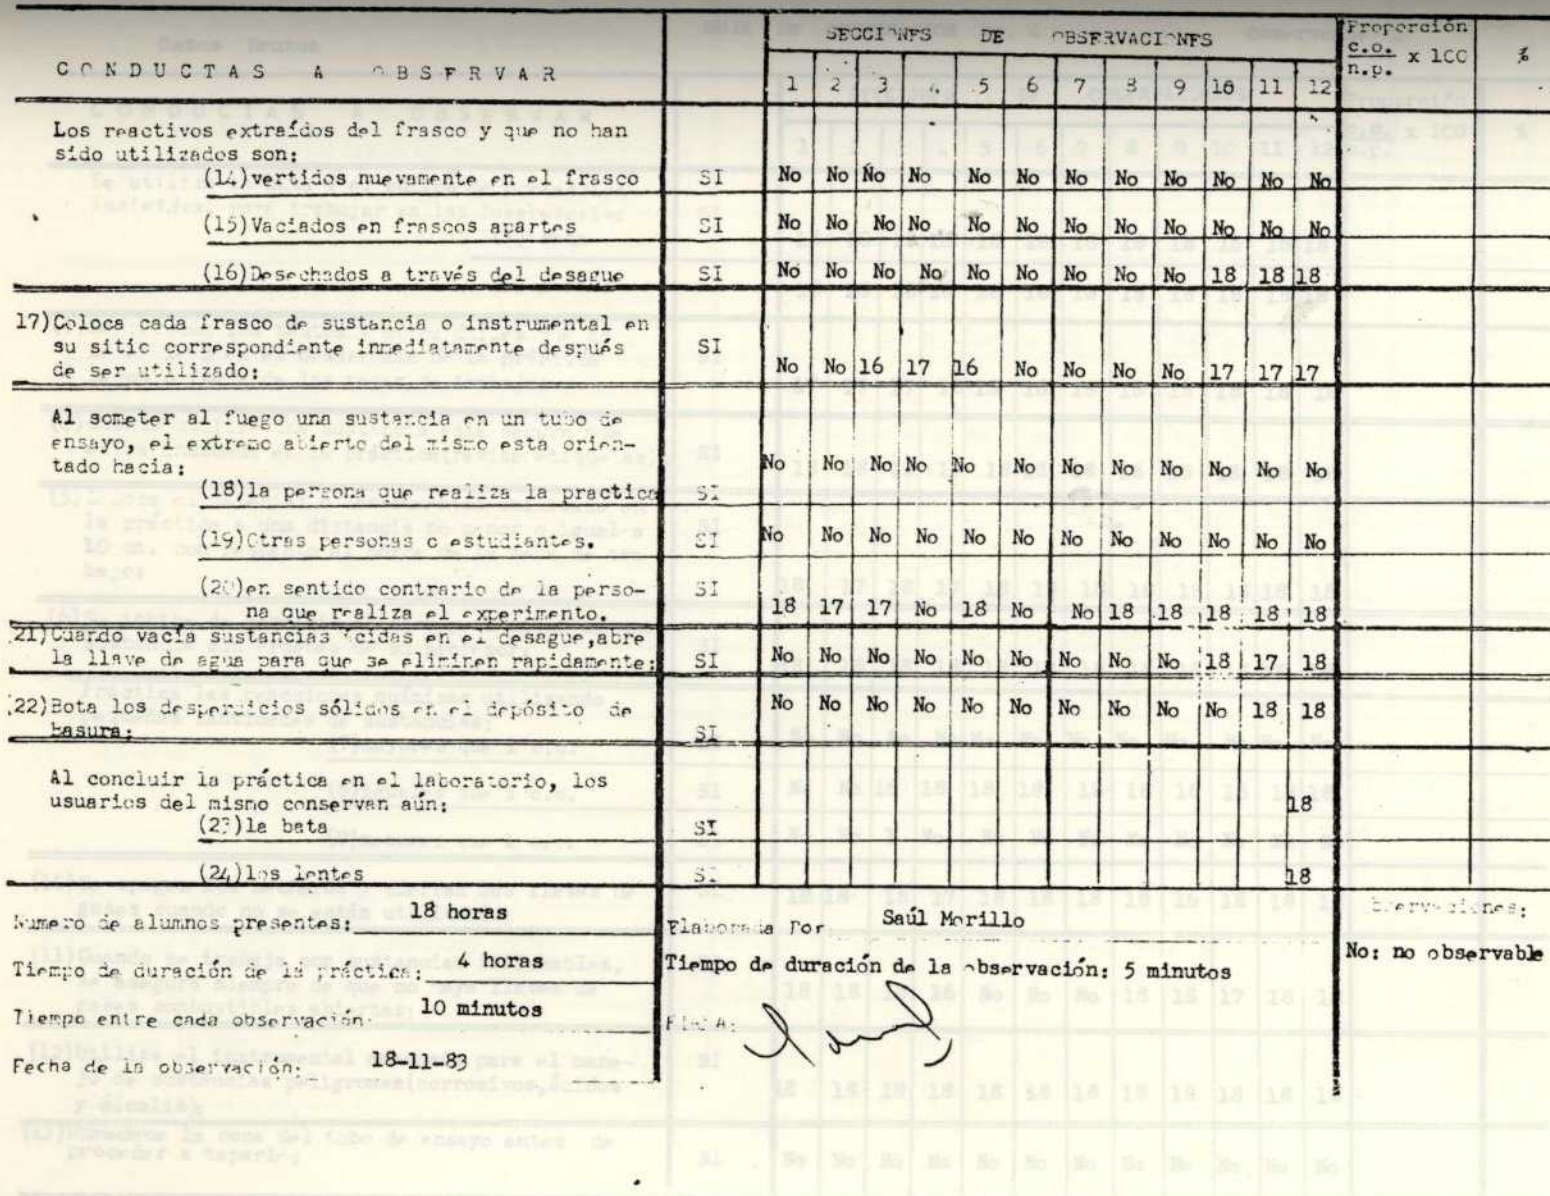 CONDUCTAS A OBSERVAR SECCIONES DE OBSERVACIONES Proporción c.o. / n.p. x 100 %
1 2 3 4 5 6 7 8 9 10 11 12
Los reactivos extraídos del frasco y que no han
sido utilizados son:
(14)vertidos nuevamente en el frasco SI No No No No No No No No No No No No
(15)Vaciados en frascos apartes SI No No No No No No No No No No No No
(16)Desechados a través del desague SI No No No No No No No No No 18 18 18
17)Coloca cada frasco de sustancia o instrumental en
su sitio correspondiente inmediatamente después SI
de ser utilizado: No No 16 17 16 No No No No 17 17 17
Al someter al fuego una sustancia en un tubo de
ensayo, el extremo abierto del mismo esta orien-
tado hacia: No No No No No No No No No No No No
(18)la persona que realiza la practica SI
(19)Otras personas o estudiantes. SI No No No No No No No No No No No No
(20)en sentido contrario de la perso- SI
na que realiza el experimento. 18 17 17 No 18 No No 18 18 18 18 18
21)Cuando vacía sustancias ácidas en el desague,abre
la llave de agua para que se eliminen rapidamente: SI No No No No No No No No No 18 17 18
22)Bota los desperdicios sólidos en el depósito de No No No No No No No No No No 18 18
basura: SI
Al concluir la práctica en el laboratorio, los
usuarios del mismo conservan aún: 18
(23)la bata SI
(24)los lentes SI 18
Numero de alumnos presentes: 18 horas Elaborada Por Saúl Morillo Observaciones:
Tiempo de duración de la práctica: 4 horas Tiempo de duración de la observación: 5 minutos No: no observable
Tiempo entre cada observación: 10 minutos FIRMA:
Fecha de la observación: 18-11-83